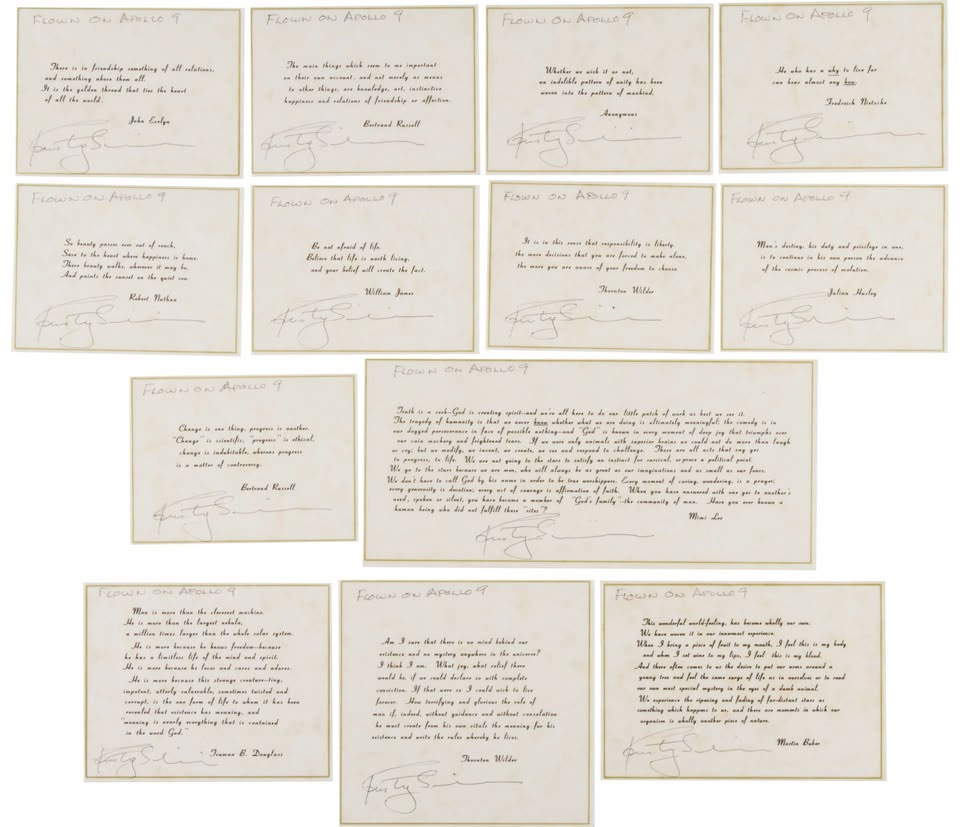 FLOWN ON APOLLO 9
There is in friendship something of all relations,
and something above them all.
It is the golden thread that ties the heart
of all the world.
John Evelyn
Rusty Schweickart
FLOWN ON APOLLO 9
The main things which seem to me important
on their own account, and not merely as means
to other things, are knowledge, art, instinctive
happiness and relations of friendship or affection.
Bertrand Russell
FLOWN ON APOLLO 9
Whether we wish it or not,
an indelible pattern of unity has been
woven into the pattern of mankind.
Anonymous
FLOWN ON APOLLO 9
He who has a why to live for
can bear almost any how.
Frederick Nietzche
FLOWN ON APOLLO 9
So beauty passes ever out of reach,
Save to the heart where happiness is home.
There beauty walks, wherever it may be,
And paints the sunset on the quiet sea.
Robert Nathan
FLOWN ON APOLLO 9
Be not afraid of life.
Believe that life is worth living,
and your belief will create the fact.
William James
FLOWN ON APOLLO 9
It is in this sense that responsibility is liberty,
the more decisions that you are forced to make alone,
the more you are aware of your freedom to choose.
Thornton Wilder
FLOWN ON APOLLO 9
Man's destiny, his duty and privilege in one,
is to continue in his own person the advance
of the cosmic process of evolution.
Julian Huxley
FLOWN ON APOLLO 9
Change is one thing, progress is another.
"Change" is scientific, "progress" is ethical,
change is indubitable, whereas progress
is a matter of controversy.
Bertrand Russell
FLOWN ON APOLLO 9
Truth is a seek--God is creating spirit--and we're all here to do our little patch of work as best we see it.
The tragedy of humanity is that we never know whether what we are doing is ultimately meaningful; the comedy is in
our dogged perseverance in face of possible nothing--and "God" is known in every moment of deep joy that triumphs over
our vain mockery and frightened tears. If we were only animals with superior brains we could not do more than laugh
or cry; but we modify, we invent, we create, we see and respond to challenge. These are all acts that say yes
to progress, to life. We are not going to the stars to satisfy an instinct for survival, or prove a political point.
We go to the stars because we are men, who will always be as great as our imaginations and as small as our fears.
We don't have to call God by his name in order to be true worshippers. Every moment of caring, wondering, is a prayer;
every generosity is devotion; every act of courage is affirmation of faith. When you have answered with one yes to another's
need, spoken or silent, you have become a member of "God's family"--the community of man. Have you ever known a
human being who did not fulfill these "rites"?
Mimi Lee
FLOWN ON APOLLO 9
Man is more than the cleverest machine.
He is more than the largest nebula,
a million times larger than the whole solar system.
He is more because he knows freedom--because
he has a limitless life of the mind and spirit.
He is more because he loves and cares and adores.
He is more because this strange creature--tiny;
impotent, utterly vulnerable, sometimes twisted and
corrupt, is the one form of life to whom it has been
revealed that existence has meaning, and
"meaning is nearly everything that is contained
in the word God."
Truman B. Douglass
FLOWN ON APOLLO 9
Am I sure that there is no mind behind our
existence and no mystery anywhere in the universe?
I think I am. What joy, what relief there
would be, if we could declare so with complete
conviction. If that were so I could wish to live
forever. How terrifying and glorious the role of
man if, indeed, without guidance and without consolation
he must create from his own vitals the meaning for his
existence and write the rules whereby he lives.
Thornton Wilder
FLOWN ON APOLLO 9
This wonderful world-feeling, has become wholly our own.
We have woven it in our innermost experience.
When I bring a piece of fruit to my mouth, I feel this is my body
and when I set wine to my lips, I feel this is my blood.
And there often comes to us the desire to put our arms around a
young tree and feel the same surge of life as in ourselves or to read
our own most special mystery in the eyes of a dumb animal.
We experience the ripening and fading of far-distant stars as
something which happens to us, and there are moments in which our
organism is wholly another piece of nature.
Martin Buber